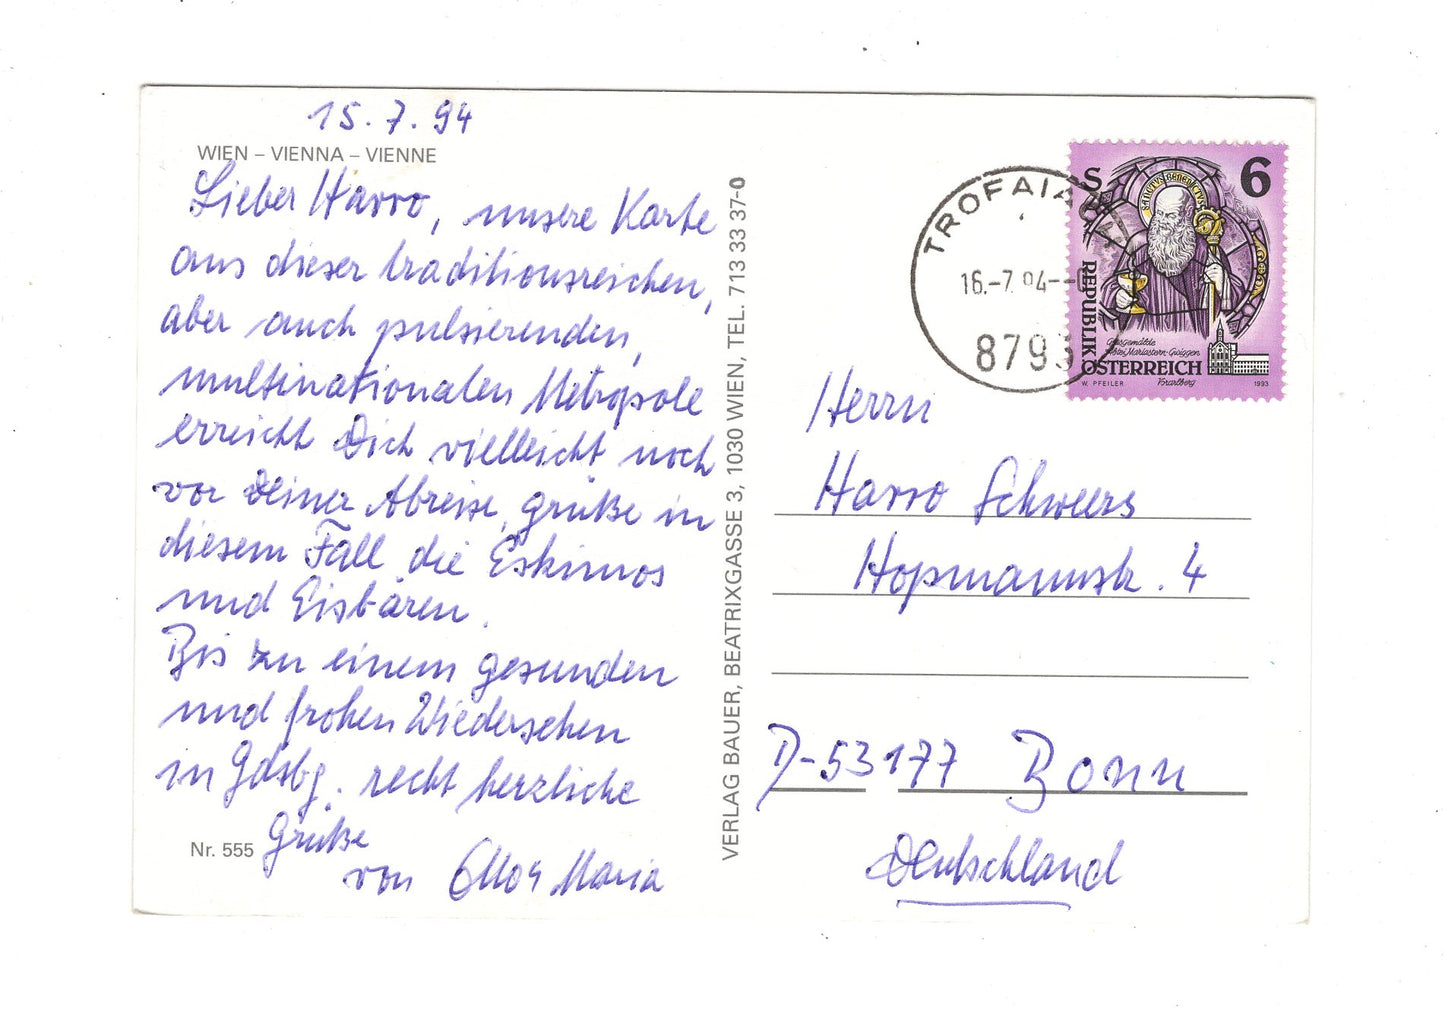 15.7.94
WIEN – VIENNA – VIENNE
Lieber Harro, unsere Karte
aus dieser traditionsreichen,
aber auch pulsierenden,
multinationalen Metropole
erreicht Dich vielleicht noch
vor Deiner Abreise, grüße in
diesem Fall die Eskimos
und Eisbären.
Bis zu einem gesunden
und frohen Wiedersehen
in Gdsbg. recht herzliche
Grüße
von Maria
Nr. 555
VERLAG BAUER, BEATRIXGASSE 3, 1030 WIEN, TEL. 713 33 37-0
TROFAIACH
16.-7.94--
8793
S 6
SANCTUS BENEDICTUS
REPUBLIK
ÖSTERREICH
Glasgemälde
Abtei Mariastern-Gwiggen
Vorarlberg
W. PFEILER
1993
Herrn
Harro Schweers
Hopmannstr. 4
D-53177 Bonn
Deutschland